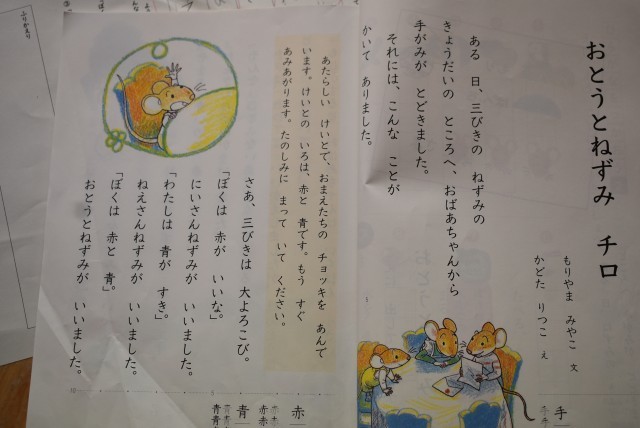 おとうとねずみ チロ
もりやま みやこ 文
かどた りつこ え
ある 日、三びきの ねずみの
きょうだいの ところへ、おばあちゃんから
手がみが とどきました。
それには、こんな ことが
かいて ありました。
手
あたらしい けいとで、おまえたちの チョッキを あんで
います。けいとの いろは、赤と 青です。もう すぐ
あみあがります。たのしみに まって いて ください。
さあ、三びきは 大よろこび。
「ぼくは 赤が いいな。」
にいさんねずみが いいました。
「わたしは 青が すき。」
ねえさんねずみが いいました。
「ぼくは 赤と 青。」
おとうとねずみが いいました。
赤
青
ふりかえり